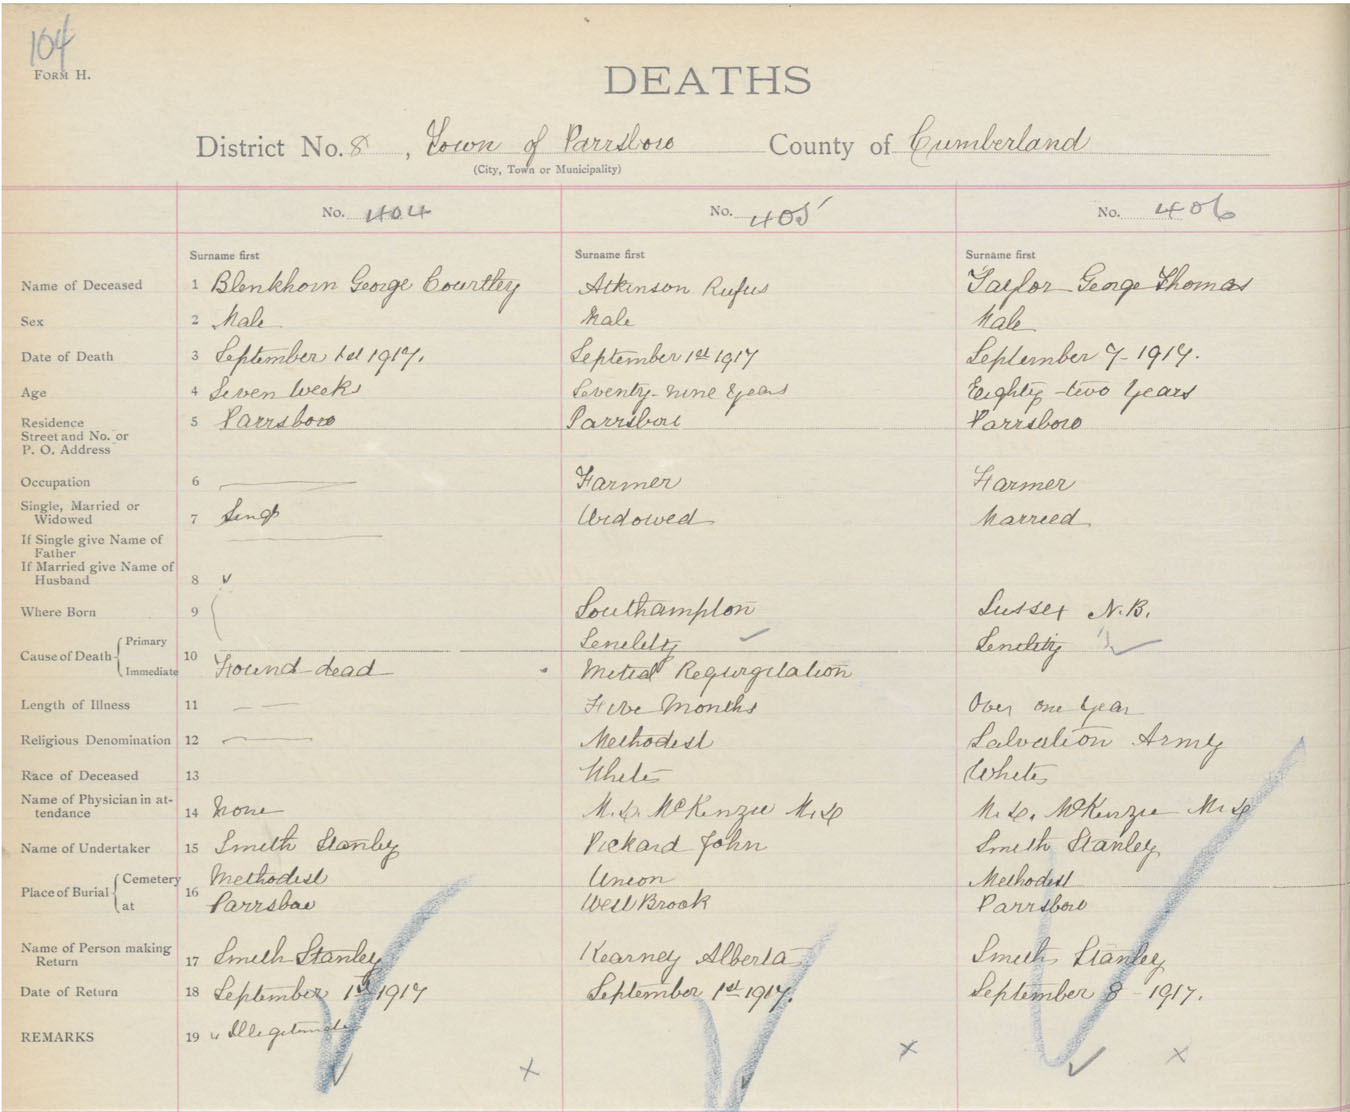 104
FORM H.
DEATHS
District No. 8, Town of Parrsboro County of Cumberland
(City, Town or Municipality)
No. 404 No. 405 No. 406
Surname first Surname first Surname first
Name of Deceased 1 Blenkhorn George Courtley Atkinson Rufus Taylor George Thomas
Sex 2 Male Male Male
Date of Death 3 September 1st 1917. September 1st 1917 September 7 - 1917.
Age 4 Seven Weeks Seventy-nine Years Eighty-two Years
Residence
Street and No. or
P. O. Address 5 Parrsboro Parrsboro Parrsboro
Occupation 6 Farmer Farmer
Single, Married or
Widowed 7 Singl Widowed Married
If Single give Name of
Father
If Married give Name of
Husband 8
Where Born 9 Southampton Sussex N.B.
Cause of Death Primary Senility Senility
10
Immediate Found dead Mitral Regurgitation
Length of Illness 11 Five Months Over one Year
Religious Denomination 12 Methodist Salvation Army
Race of Deceased 13 White White
Name of Physician in at-
tendance 14 None M.D. McKenzie M.D. M.D. McKenzie M.D.
Name of Undertaker 15 Smith Stanley Pickard John Smith Stanley
Place of Burial Cemetery Methodist Union Methodist
16
at Parrsboro West Brook Parrsboro
Name of Person making
Return 17 Smith Stanley Kearney Alberta Smith Stanley
Date of Return 18 September 1st 1917 September 1st 1917. September 8 - 1917.
REMARKS 19 " Illegitimate